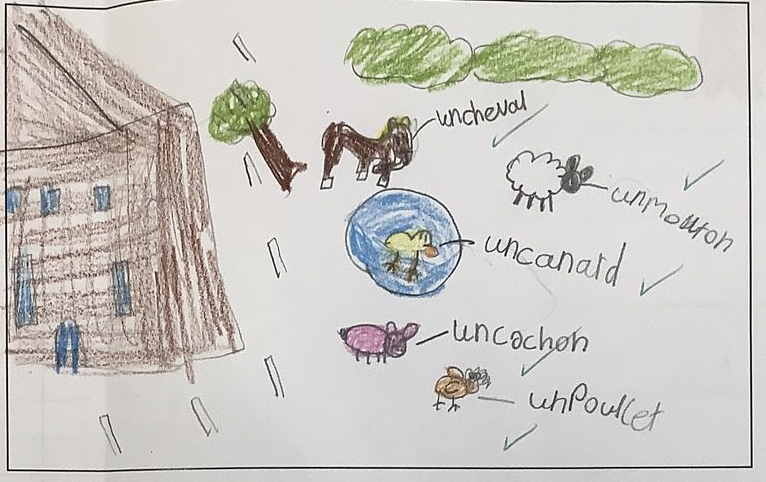 uncheval
unmouton
uncanard
uncochon
unPoullet